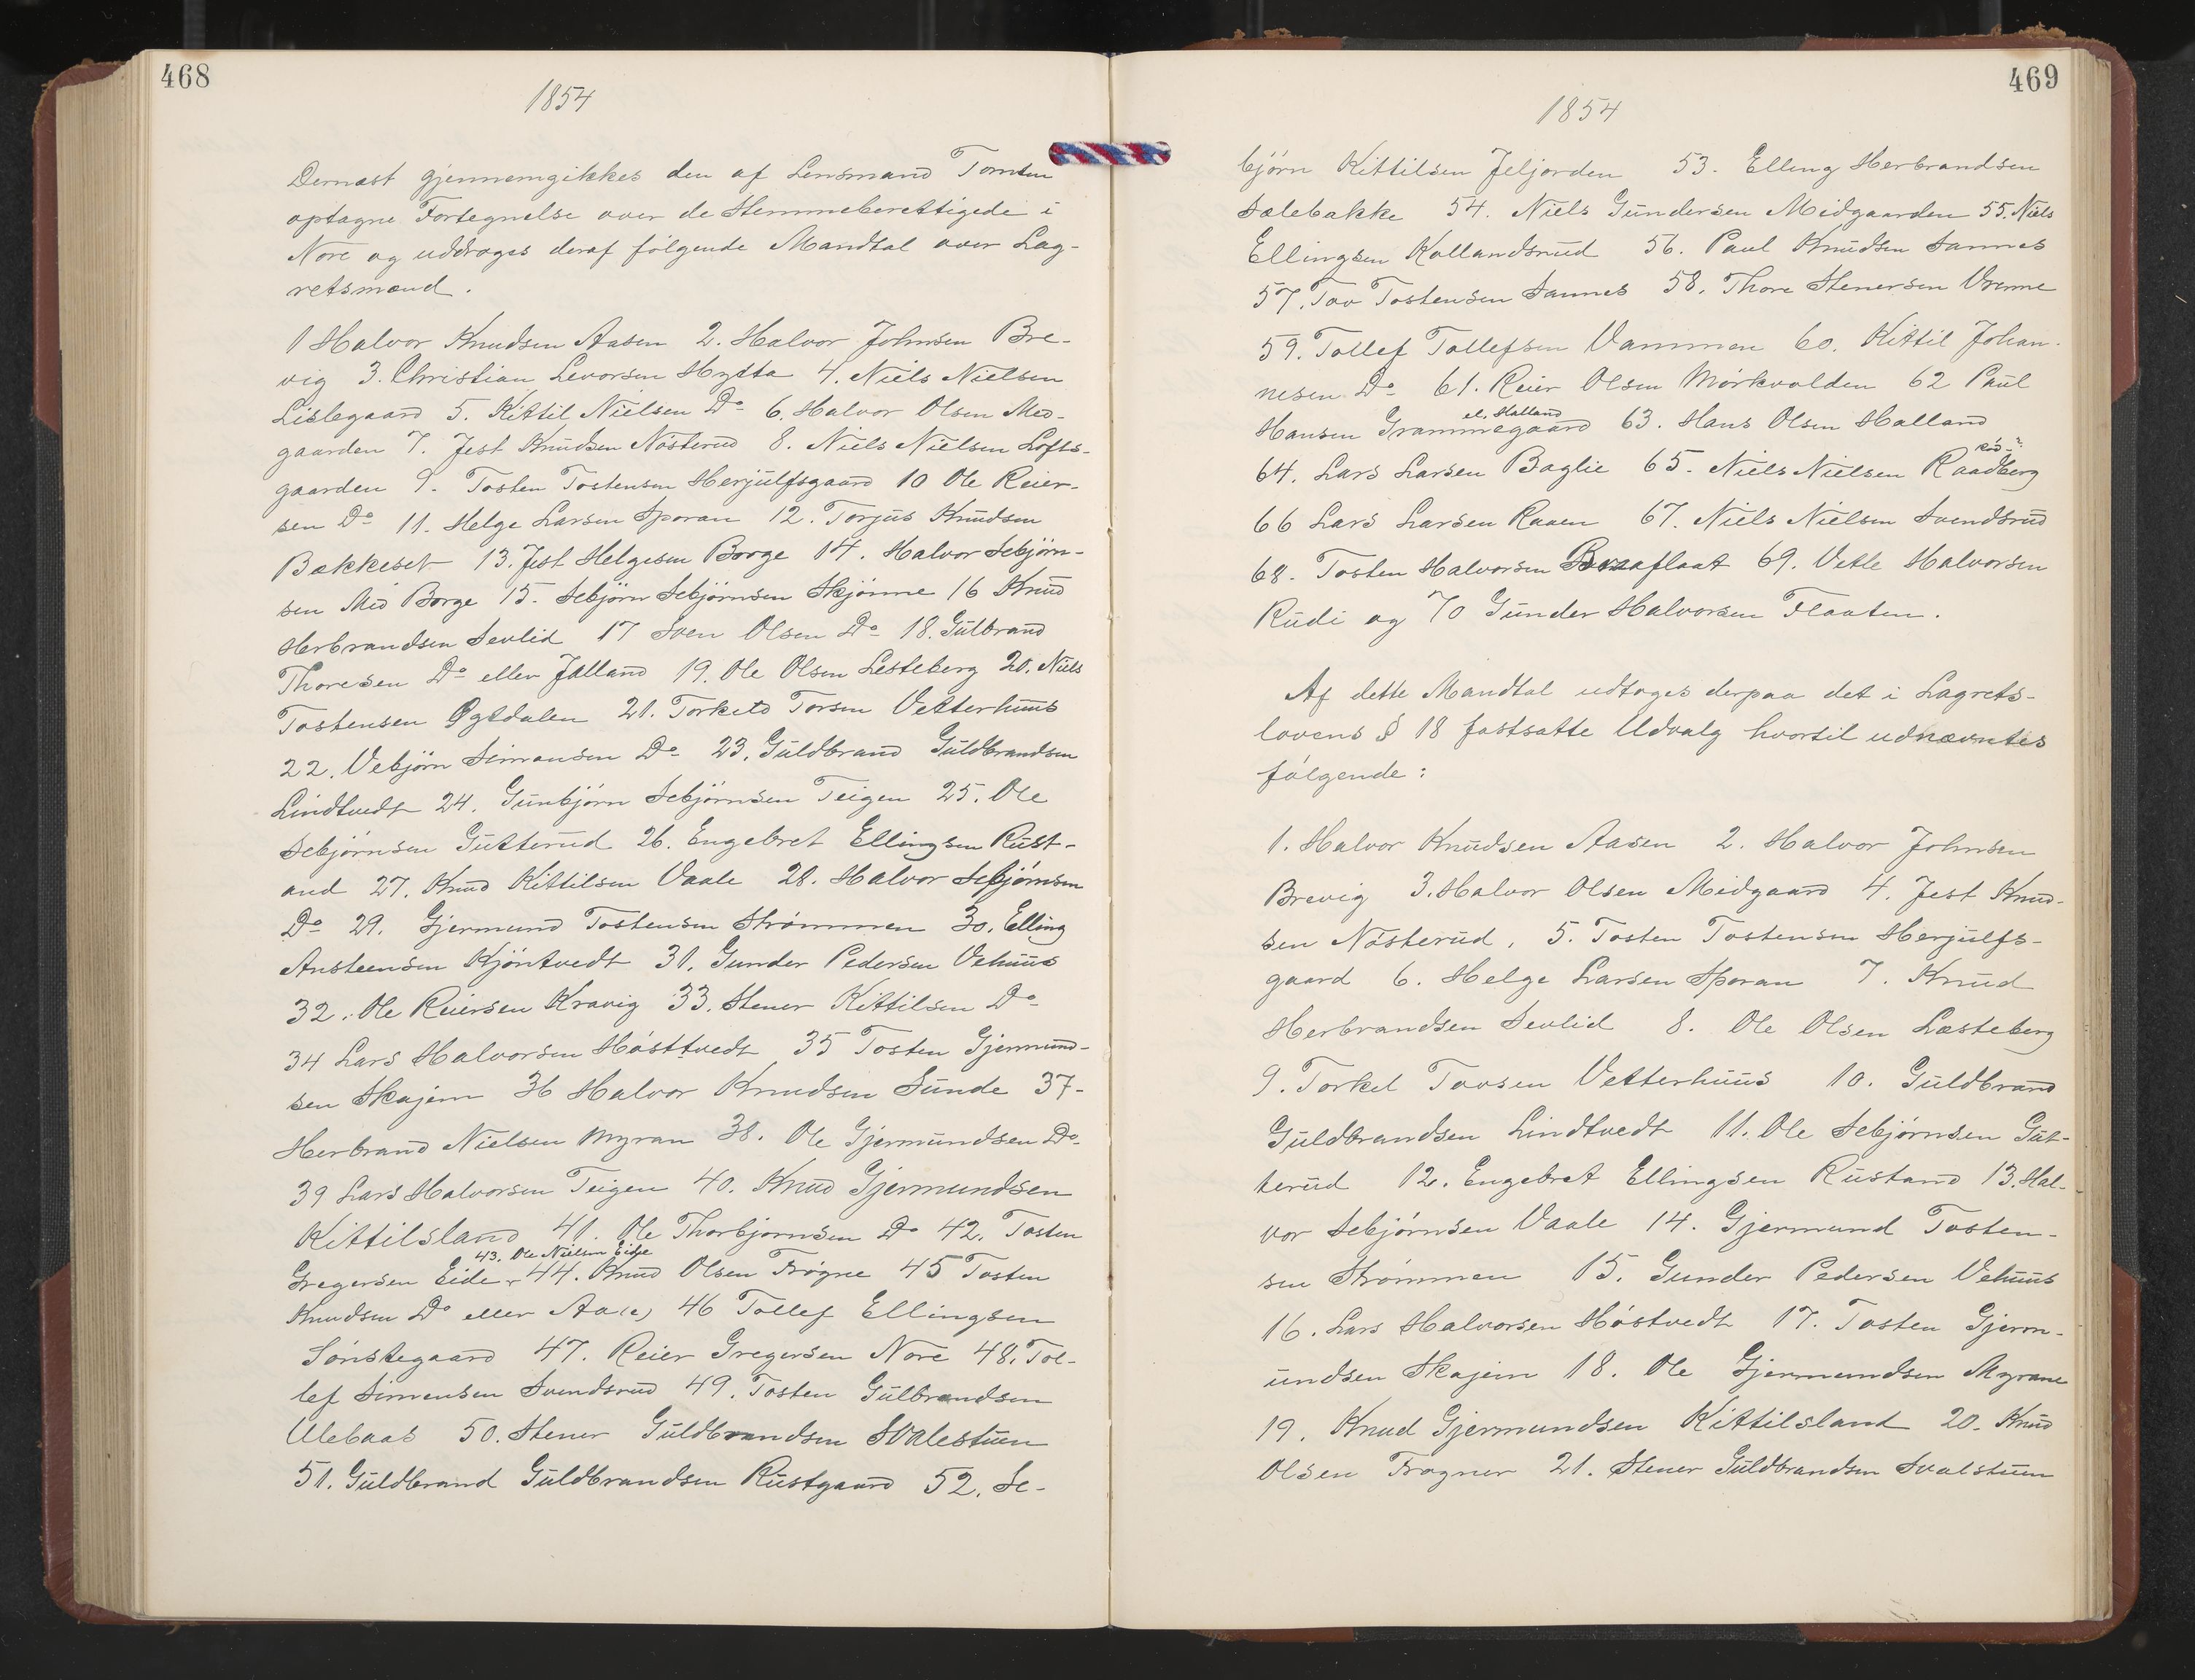 468
1854
Dernæst gjennemgikkes den af Lensmand Tomten
optagne Fortegnelse over de Stemmeberettigede i
Nore og uddroges deraf følgende Mandtal over Lag-
retsmænd.
1 Halvor Knudsen Aasen 2. Halvor Johnsen Bre-
vig 3. Christian Levorsen Hydta 4. Niels Nielsen
Lislegaard 5. Kittil Nielsen Do 6. Halvor Olsen Med-
gaarden 7. Jest Knudsen Nösterud 8. Niels Nielsen Lofts-
gaarden 9. Tosten Tostensen Herjulfsgaard 10 Ole Reier-
sen Do 11. Helge Larsen Sporan 12. Torjus Knudsen
Bækkeset 13. Jest Helgesen Borge 14. Halvor Sebjörn-
sen Med Borge 15. Sebjörn Sebjörnsen Skjönne 16 Knud
Herbrandsen Sevlid 17 Sven Olsen Do 18. Gulbrand
Thoresen Do eller Jalland 19. Ole Olsen Lesteberg 20. Niels
Tostensen Öygdalen 21. Torkeld Torsen Vetterhuus
22. Vebjörn Simensen Do 23. Guldbrand Guldbrandsen
Lindtvedt 24. Gunbjörn Sebjörnsen Teigen 25. Ole
Sebjörnsen Gutterud 26. Engebret Ellingsen Rust-
and 27. Knud Kittilsen Vaale 28. Halvor Sebjörnsen
Do 29. Gjermund Tostensen Strömmen 30. Elling
Ansteensen Kjöntvedt 31. Gunder Pedersen Vehuus
32. Ole Reiersen Kravig 33. Stener Kittilsen Do
34 Lars Halvorsen Hösttvedt 35 Tosten Gjermund-
sen Skajem 36 Halvor Knudsen Sunde 37-
Herbrand Nielsen Myran 38. Ole Gjermundsen Do
39 Lars Halvorsen Teigen 40. Knud Gjermundsen
Kittilsland 41. Ole Thorbjornsen Do 42. Tosten
43. Ole Nielsen Eidje
Gregersen Eide, 44. Knud Olsen Frögne 45 Tosten
Knudsen Do eller Aa(e) 46 Tollef Ellingsen
Sönstegaard 47. Reier Gregersen Nore 48. Tol-
lef Simensen Svendsrud 49. Tosten Gulbrandsen
Ulebaas 50. Stener Guldbrandsen Svalestuen
51. Guldbrand Guldbrandsen Rustgaard 52. Se-
469
1854
björn Kittilsen Jeljorden 53. Elling Herbrandsen
Sælebakke 54. Niels Gundersen Midgaarden 55. Niels
Ellingsen Kollandsrud 56. Paul Knudsen Sannes
57. Tov Tostensen Sannes 58. Thore Stenersen Vrenne
59. Tollef Tollefsen Vammen 60. Kittil Johan-
nesen Do 61. Reier Olsen Mörkvolden 62 Paul
el. Halland
Hansen Grammegaard 63. Hans Olsen Halland
Röd-?
64. Lars Larsen Baglie 65. Niels Nielsen Raadberg
66 Lars Larsen Raaen 67. Niels Nielsen Svendsrud
68. Tosten Halvorsen Braaflaat 69. Vetle Halvorsen
Rudi og 70 Gunder Halvorsen Flaaten.
Af dette Mandtal udtoges derpaa det i Lagrets-
lovens § 18 fastsatte Udvalg hvortil udnævntes
følgende:
1. Halvor Knudsen Aasen 2. Halvor Johnsen
Brevig 3. Halvor Olsen Midgaard 4. Jest Knud-
sen Nösterud, 5. Tosten Tostensen Herjulfs-
gaard 6. Helge Larsen Sporan 7. Knud
Herbrandsen Sevlid 8. Ole Olsen Læsteberg
9. Torkel Tovsen Vetterhuus 10. Guldbrand
Guldbrandsen Lindtvedt 11. Ole Sebjörnsen Gut-
terud 12. Engebret Ellingsen Rustand 13. Hal-
vor Sebjörnsen Vaale 14. Gjermund Tosten-
sen Strömmen 15. Gunder Pedersen Vehuus
16. Lars Halvorsen Höstvedt 17. Tosten Gjerm-
undsen Skajem 18. Ole Gjermundsen Myrane
19. Knud Gjermundsen Kittilsland 20. Knud
Olsen Frogner 21. Stener Guldbrandsen Svalstuen